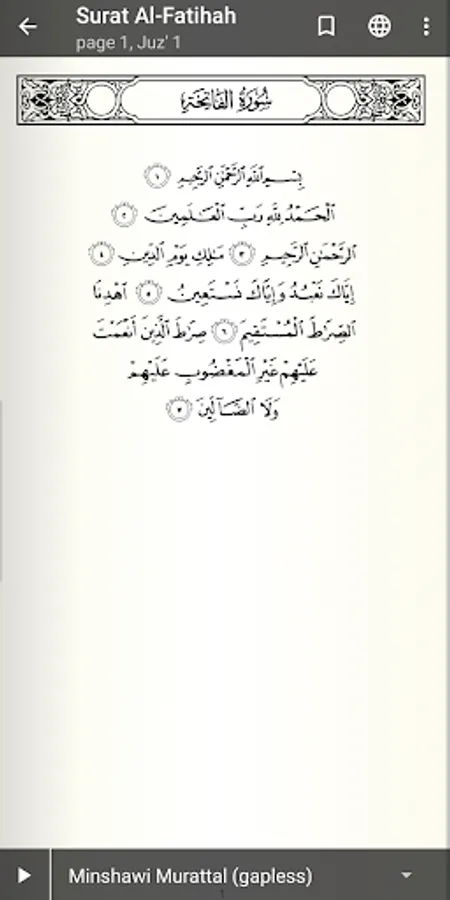 Surat Al-Fatihah
page 1, Juz' 1
سُورَةُ الْفَاتِحَةِ
بِسْمِ ٱللَّهِ ٱلرَّحْمَٰنِ ٱلرَّحِيمِ ١
ٱلْحَمْدُ لِلَّهِ رَبِّ ٱلْعَٰلَمِينَ ٢
ٱلرَّحْمَٰنِ ٱلرَّحِيمِ ٣ مَٰلِكِ يَوْمِ ٱلدِّينِ ٤
إِيَّاكَ نَعْبُدُ وَإِيَّاكَ نَسْتَعِينُ ٥ ٱهْدِنَا
ٱلصِّرَٰطَ ٱلْمُسْتَقِيمَ ٦ صِرَٰطَ ٱلَّذِينَ أَنْعَمْتَ
عَلَيْهِمْ غَيْرِ ٱلْمَغْضُوبِ عَلَيْهِمْ
وَلَا ٱلضَّآلِّينَ ٧
Minshawi Murattal (gapless)
1